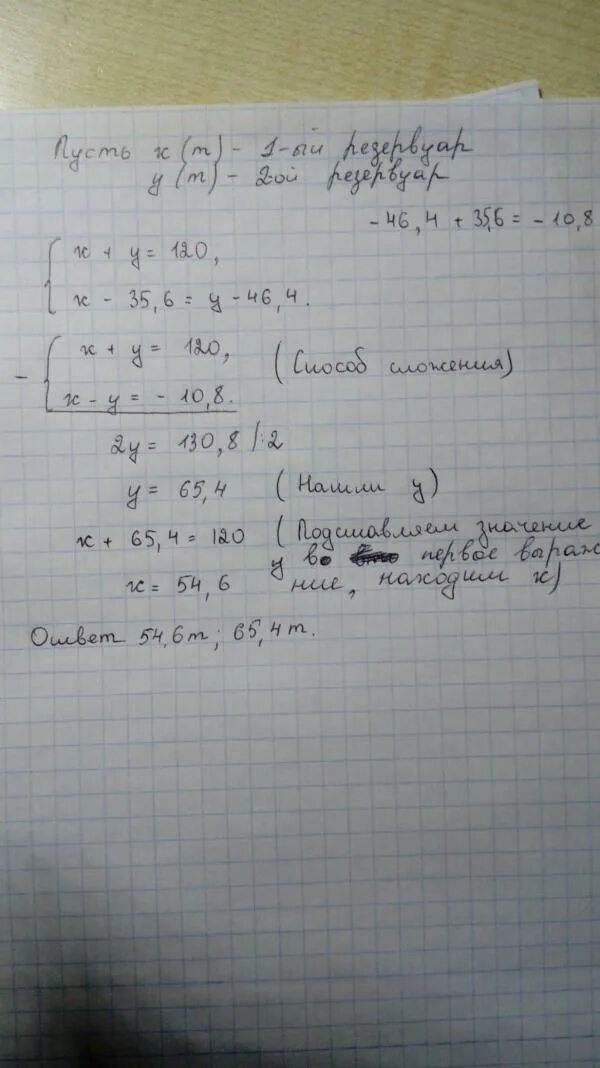 Пусть х (т) - 1-ый резервуар
у (т) - 2-ой резервуар
- 46,4 + 35,6 = - 10,8
х + у = 120,
х - 35,6 = у - 46,4.
- х + у = 120, (Способ сложения)
х - у = - 10,8.
2у = 130,8 |:2
у = 65,4 (Нашли у)
х + 65,4 = 120 (Подставляем значение
у во первое выраж
х = 54,6 ние, находим х)
Ответ 54,6т; 65,4т.